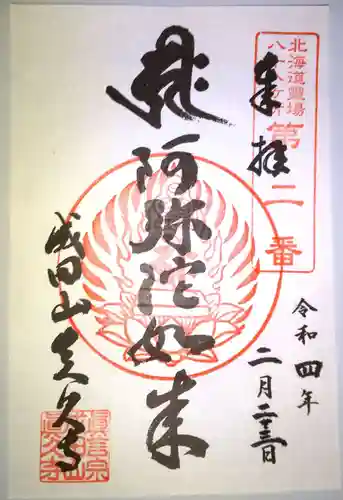 北海道霊場
八十八ヶ所
第二番
奉拝
阿弥陀如来
令和四年
二月二十三日
成田山真久寺